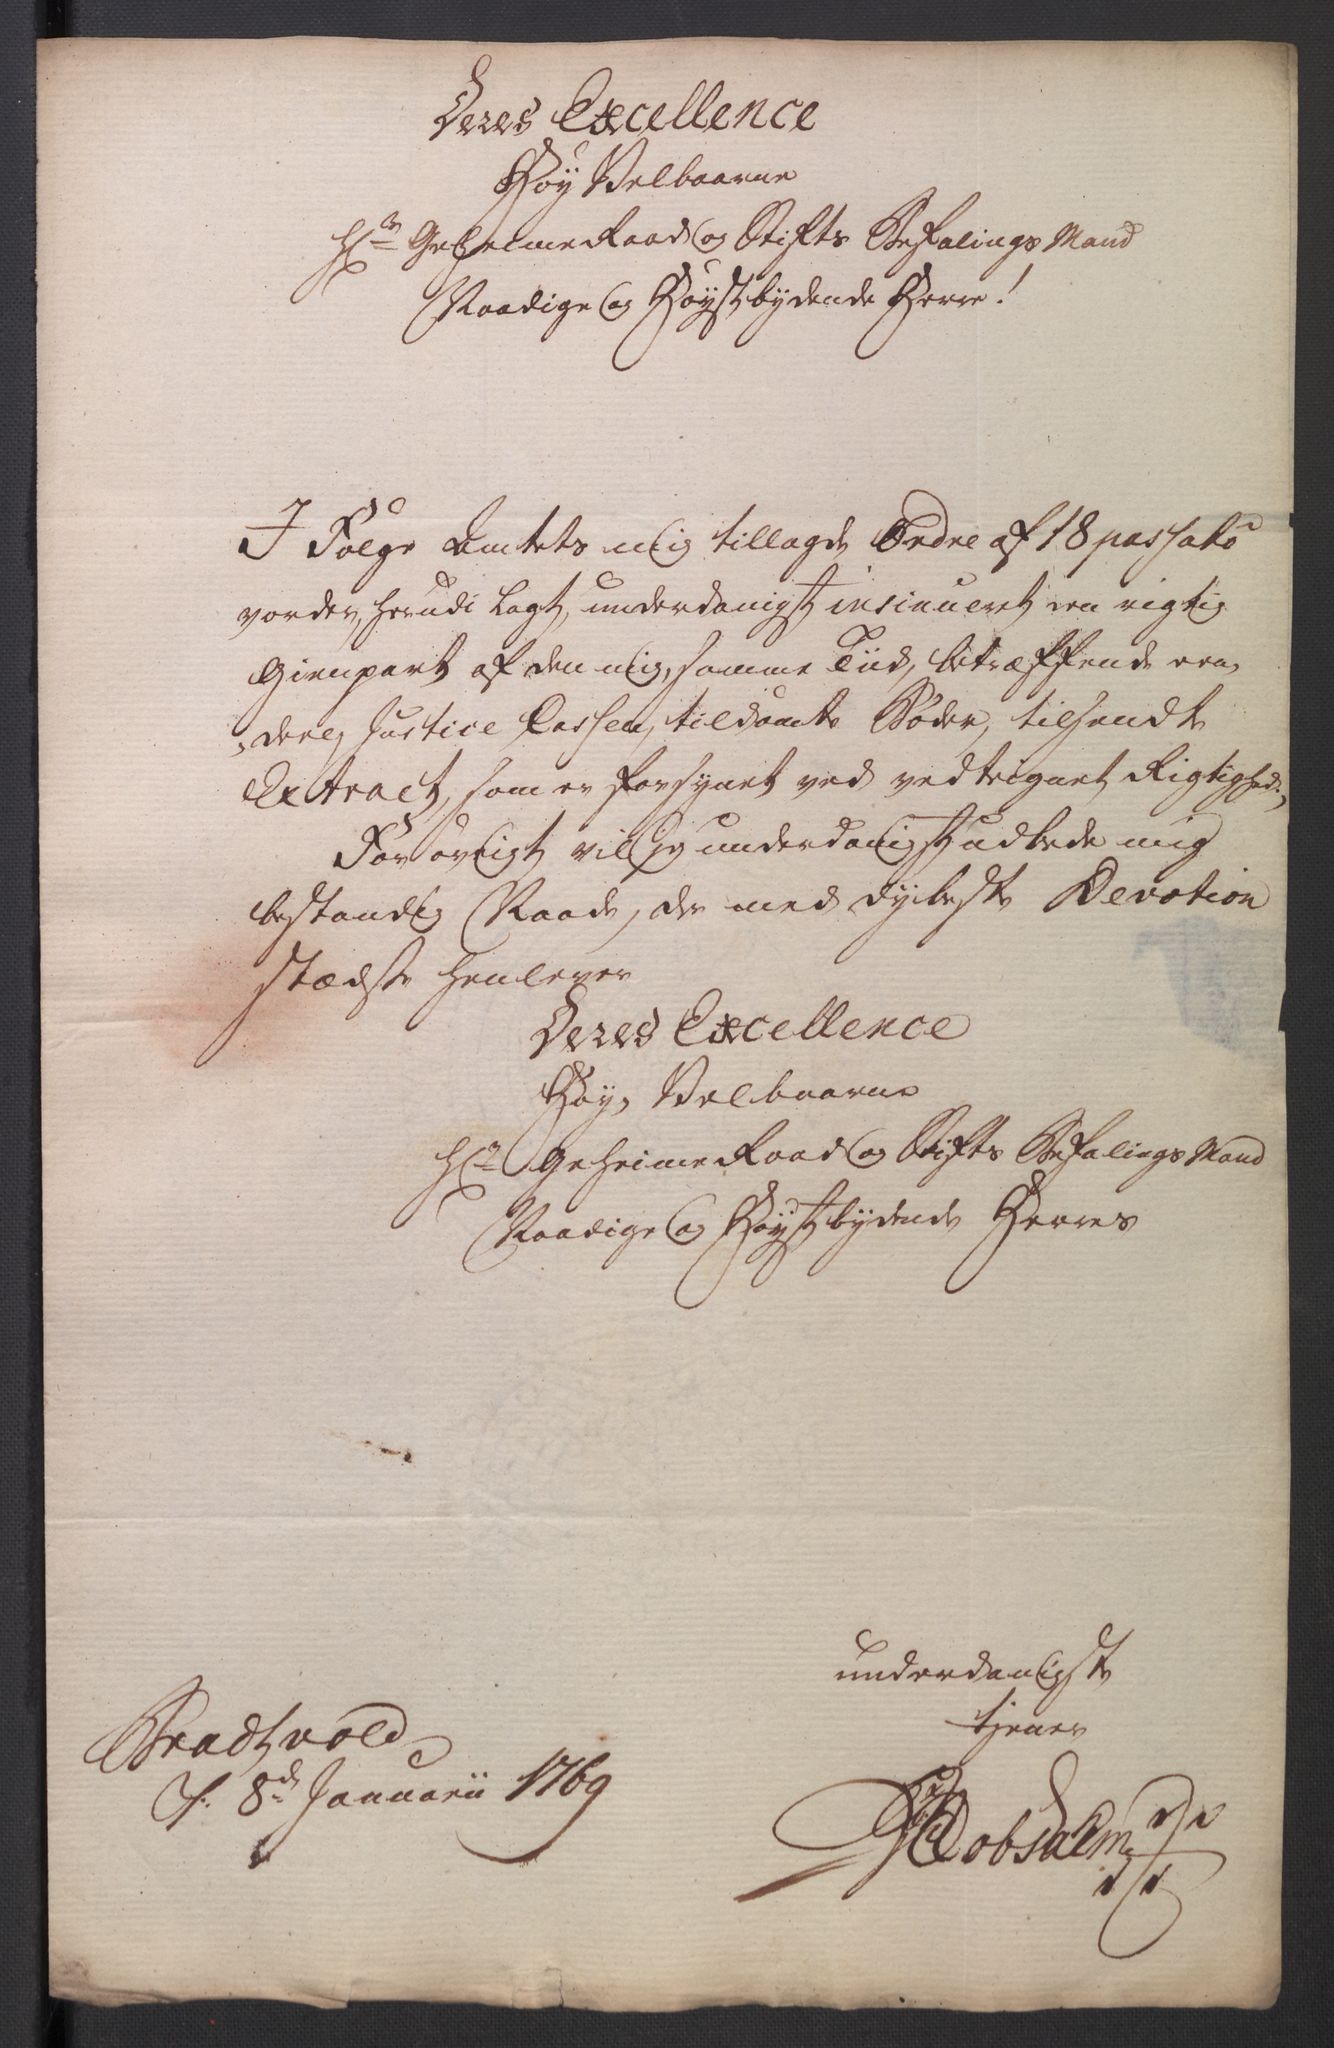 Deres Excellence
Høy Velbaarne
Hr Geheime Raad og Stifts Befalings Mand
Naadige og Høystbydende Herre!
I Følge Amtets mig tillagde Ordre af 18 passato
vorder, herudi Lagt, underdanigst insinueret een rigtig
Gienpart af den mig, samme Tiid, betræffende een,
deel Justice Cassen, tildømte Bøder, tilsendte
Extract, som er forsynet ved vedtegnet Rigtighed.
For øvrigt vil Jeg underdanigst udbede mig
bestandig Naade, der med dybeste Devotion
stædse henlever
Deres Excellence
Høy, Velbaarne
Hr Geheime Raad og Stifts Befalings Mand
Naadige og Høystbydende Herres
underdanigste
tjener
Bradtvold
d. 8de Januarii 1769